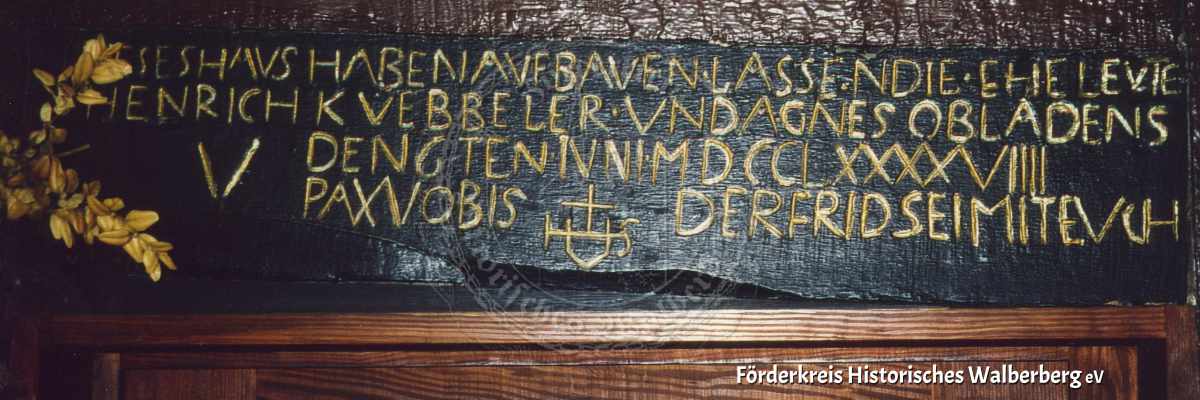 SES HAVS HABEN AVFBAVEN · LASSE · N DIE · EHELEVTE
HENRICH KVEBBELER · VND AGNES OBLADENS
V DEN GTEN · IVNI MDCCLXXXXVIIII
PAX VOBIS IHS DER FRID SEI MIT EVCH
Förderkreis Historisches Walberberg eV